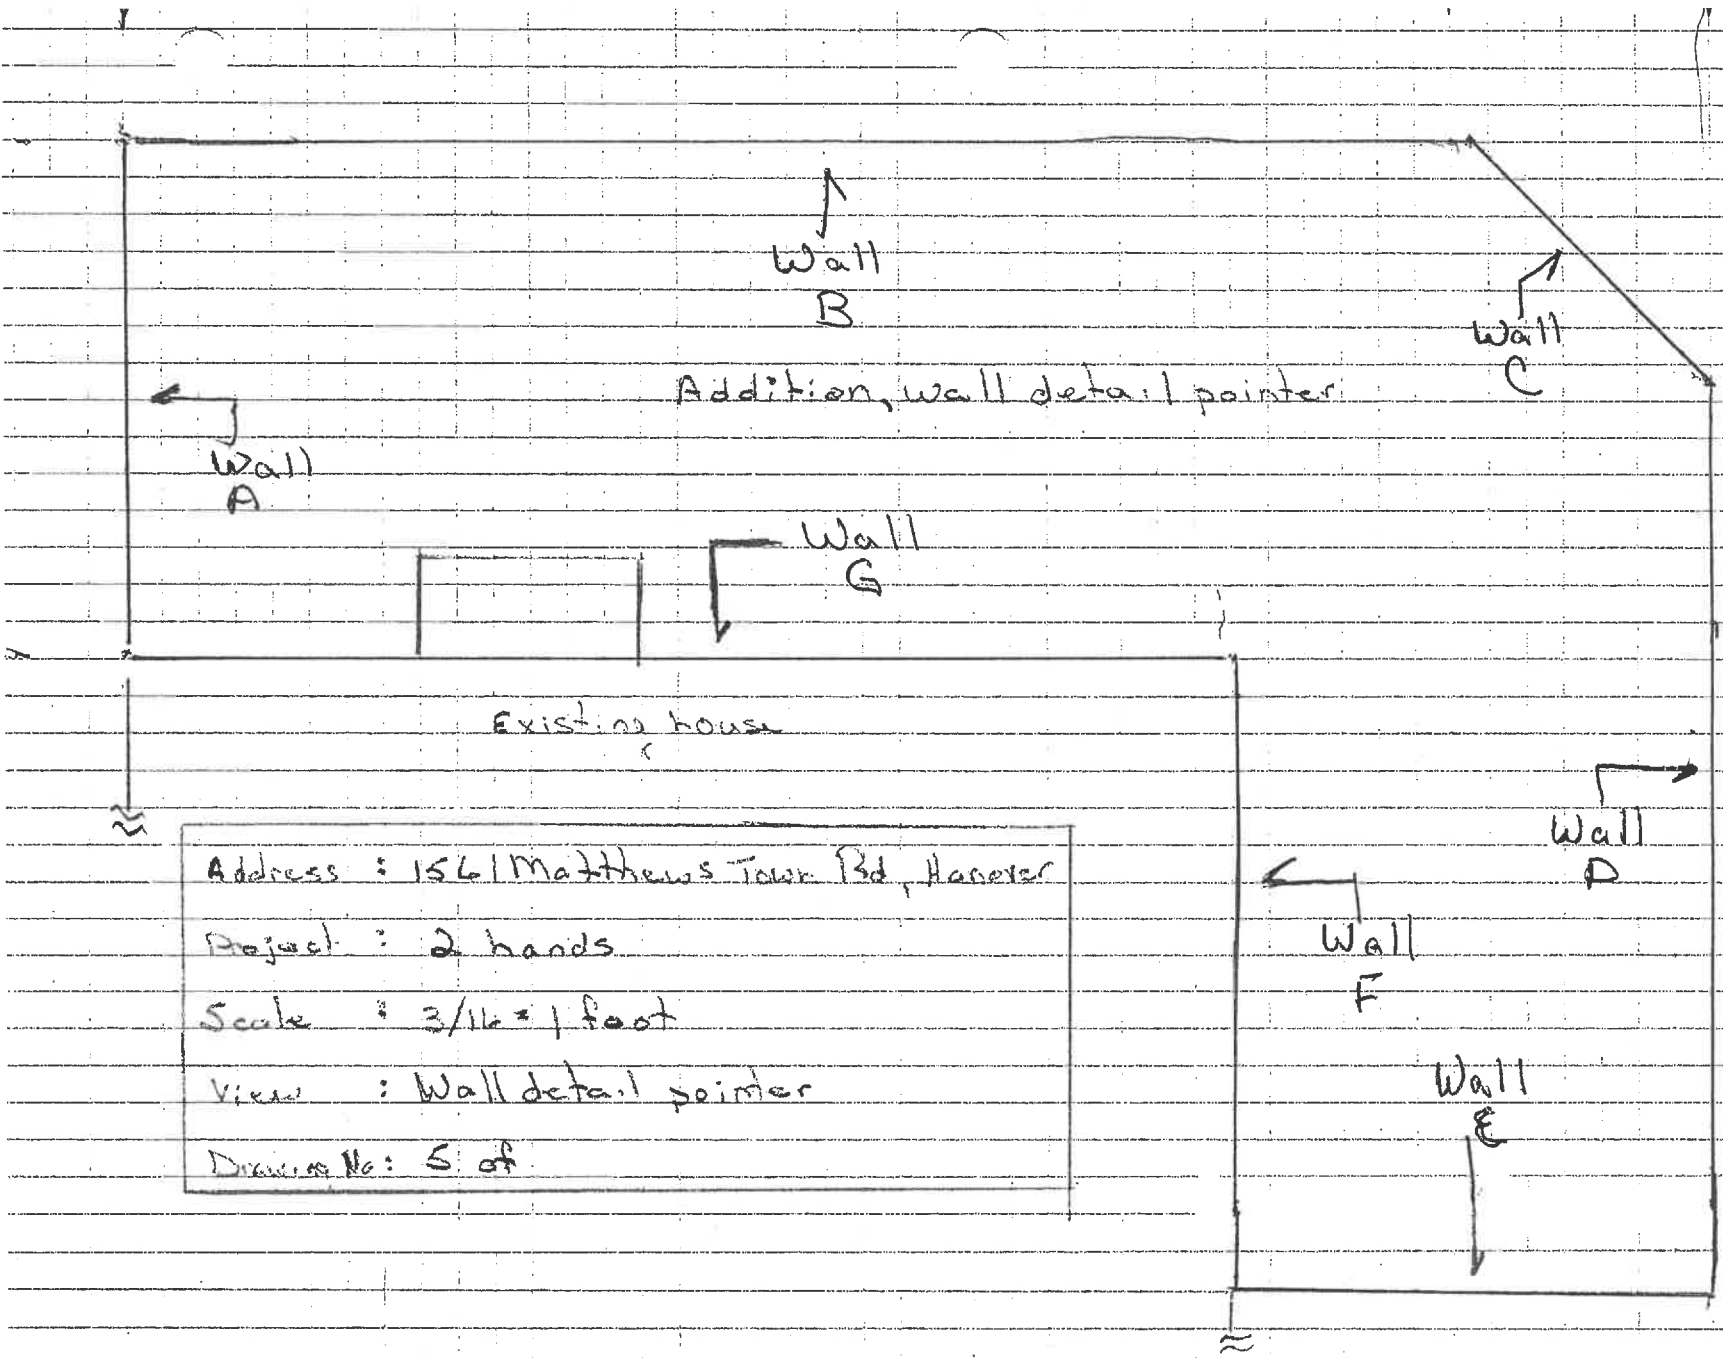 Wall
B
Wall
C
Addition, wall detail pointer
Wall
A
Wall
G
Existing house
Wall
D
Address : 1561 Matthews Town Rd, Hanover
Wall
F
Project : 2 hands
Scale : 3/16 = 1 foot
Wall
E
View : Wall detail pointer
Drawing No: 5 of